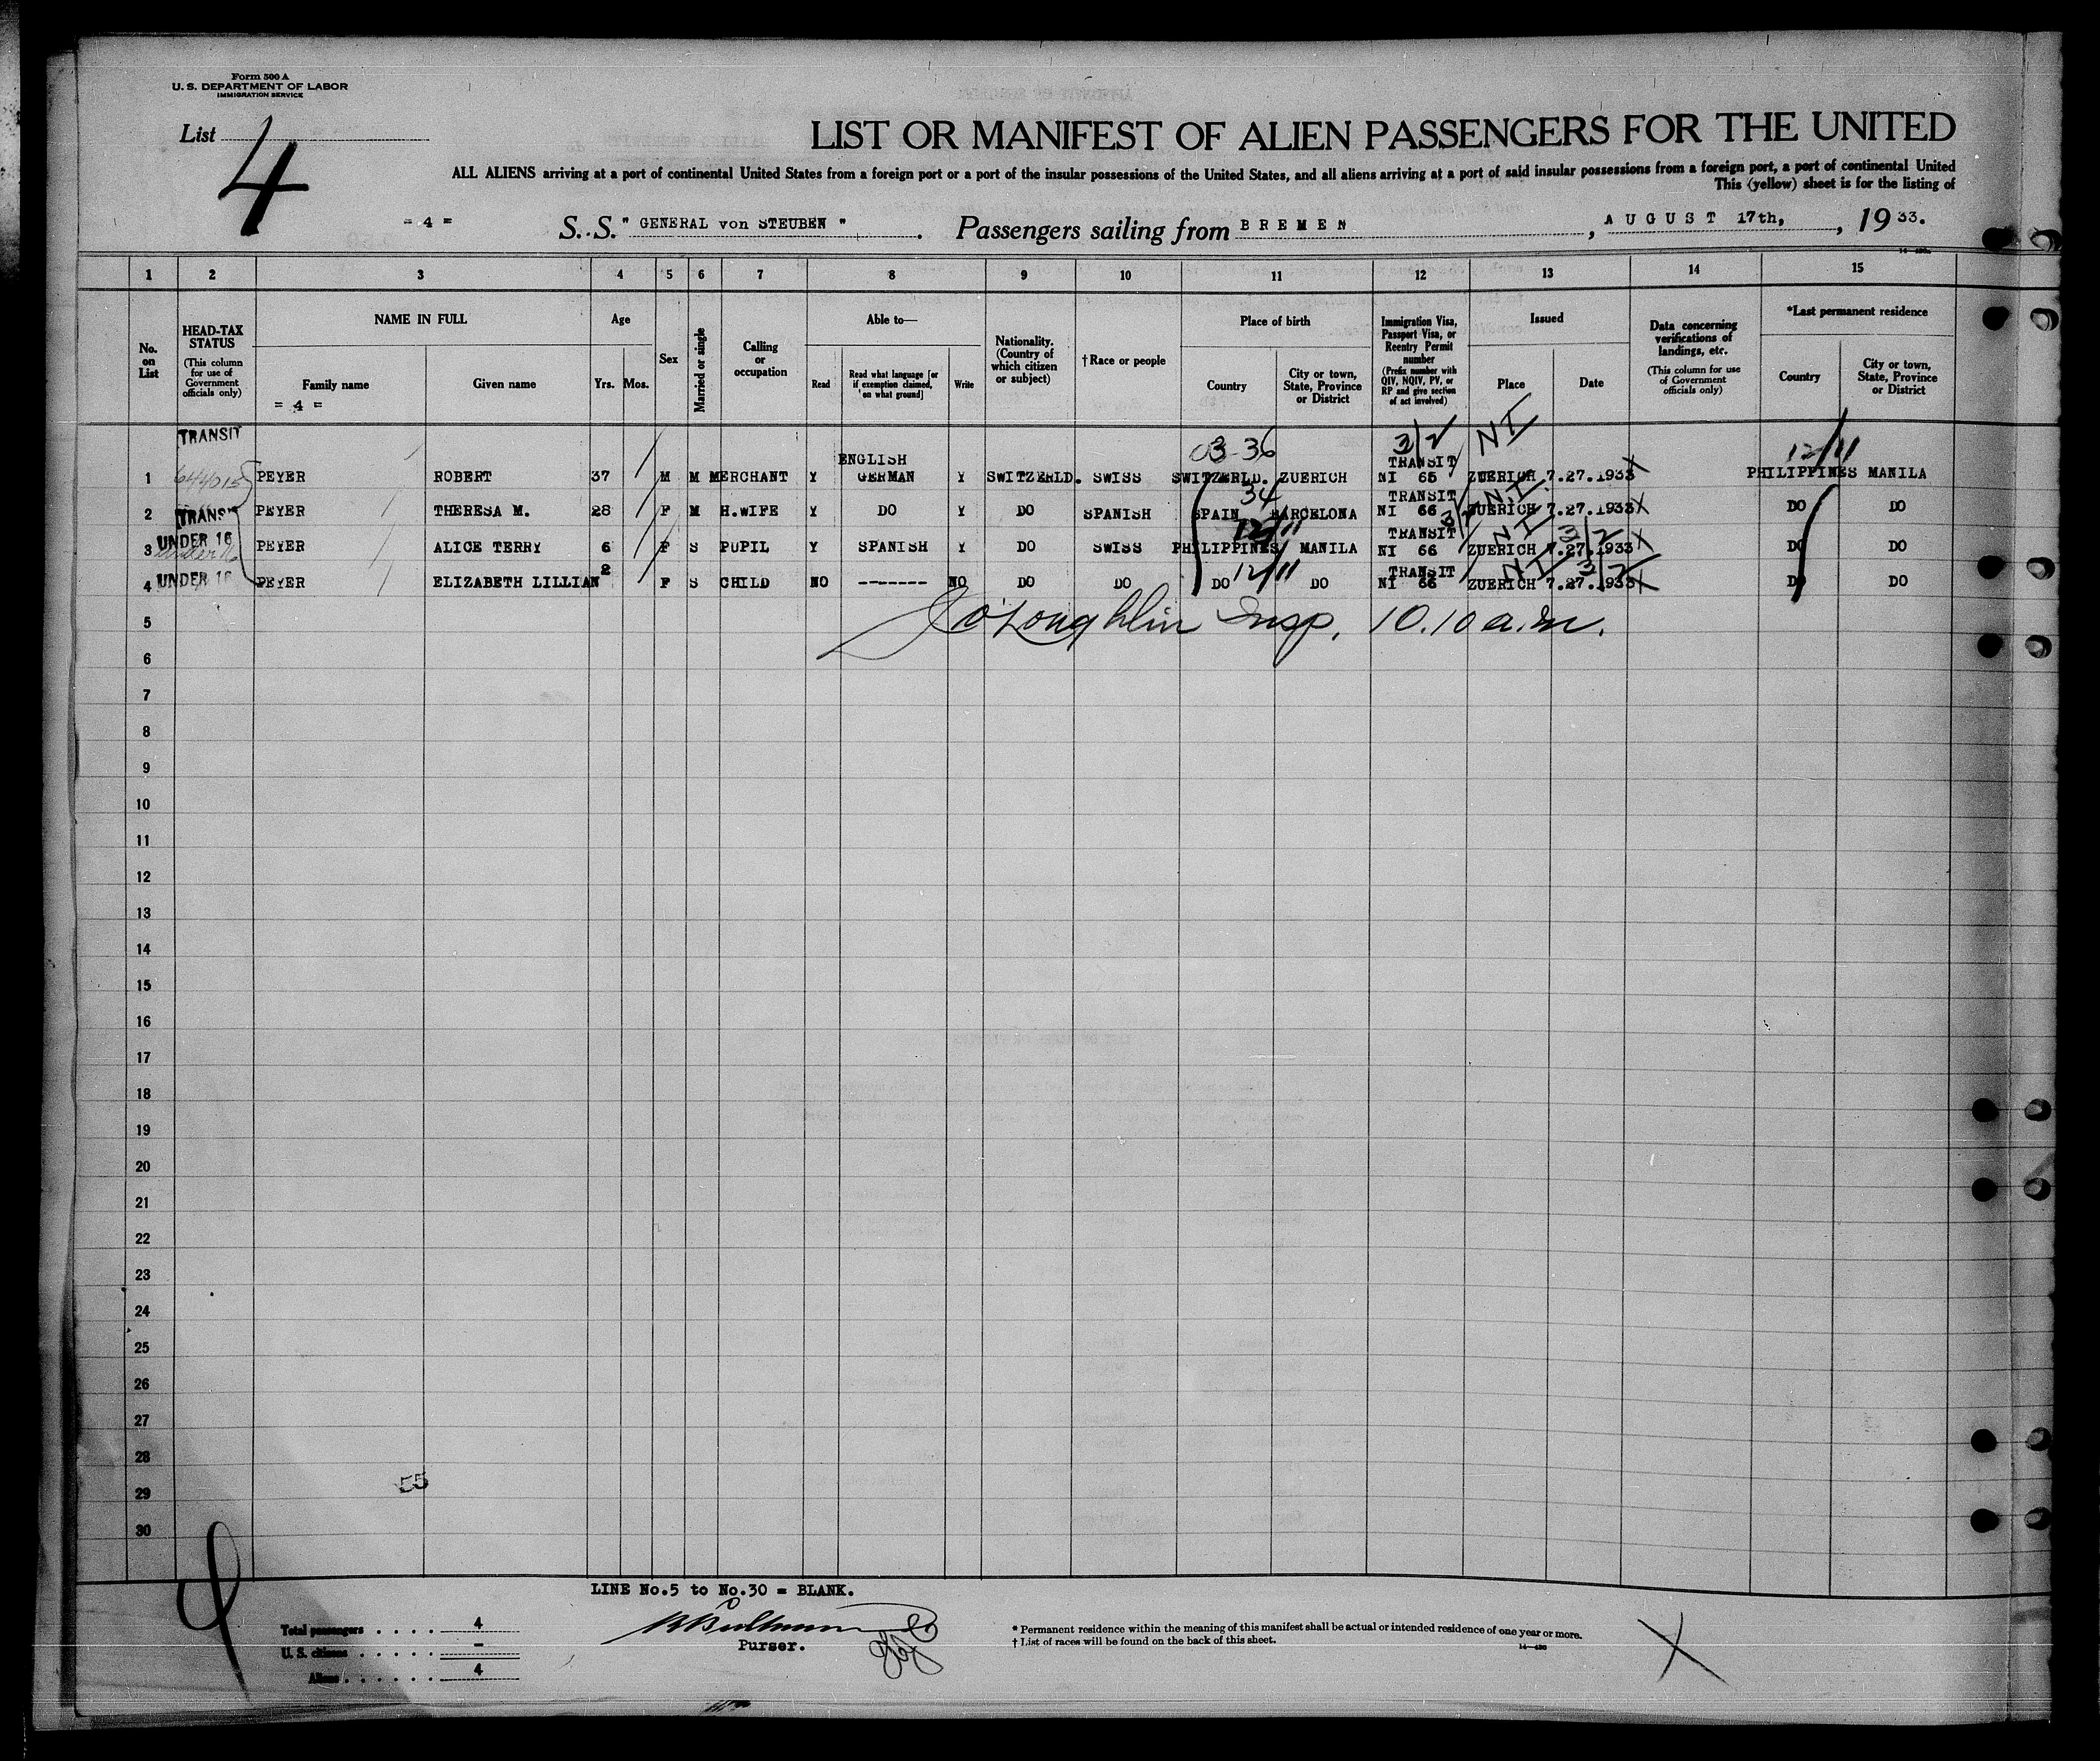 Form 500 A
U. S. DEPARTMENT OF LABOR
IMMIGRATION SERVICE
List 4
LIST OR MANIFEST OF ALIEN PASSENGERS FOR THE UNITED
ALL ALIENS arriving at a port of continental United States from a foreign port or a port of the insular possessions of the United States, and all aliens arriving at a port of said insular possessions from a foreign port, a port of continental United
This (yellow) sheet is for the listing of
= 4 = S. S. " GENERAL von STEUBEN ". Passengers sailing from BREMEN, AUGUST 17th, 1933.
1 2 3 4 5 6 7 8 9 10 11 12 13 14 15
No. on List
HEAD-TAX STATUS (This column for use of Government officials only)
NAME IN FULL
Family name
= 4 =
Given name
Age
Yrs. Mos.
Sex
Married or single
Calling or occupation
Able to—
Read
Read what language [or if exemption claimed, on what ground]
Write
Nationality. (Country of which citizen or subject)
†Race or people
Place of birth
Country
City or town, State, Province or District
Immigration Visa, Passport Visa, or Reentry Permit number (Prefix number with QIV, NQIV, PV, or RP and give section of act involved)
Issued
Place
Date
Data concerning verifications of landings, etc. (This column for use of Government officials only)
*Last permanent residence
Country
City or town, State, Province or District
TRANSIT 03-36 3/2 NI 12/11
ENGLISH TRANSIT
1 644015 PEYER ROBERT 37 M M MERCHANT Y GERMAN Y SWITZERLD. SWISS SWITZERLD. ZUERICH NI 65 ZUERICH 7.27.1933 X PHILIPPINES MANILA
34 TRANSIT 3/2 NI
2 TRANSIT PEYER THERESA M. 28 F M H.WIFE Y DO Y DO SPANISH SPAIN BARCELONA NI 66 ZUERICH 7.27.1933 X DO DO
UNDER 16 12/11 TRANSIT NI 3/2
3 under 16 PEYER ALICE TERRY 6 F S PUPIL Y SPANISH Y DO SWISS PHILIPPINES MANILA NI 66 ZUERICH 7.27.1933 X DO DO
12/11 TRANSIT NI 3/2
4 UNDER 16 PEYER ELIZABETH LILLIAN 2 F S CHILD NO ------- NO DO DO DO DO NI 66 ZUERICH 7.27.1933 X DO DO
5 O'Loughlin Insp. 10.10 a.m.
6
7
8
9
10
11
12
13
14
15
16
17
18
19
20
21
22
23
24
25
26
27
28
55
29
30
LINE No.5 to No.30 = BLANK.
Total passengers . . . . 4
U. S. citizens . . . . . –
Aliens . . . . . . 4
Purser.
* Permanent residence within the meaning of this manifest shall be actual or intended residence of one year or more.
† List of races will be found on the back of this sheet.
14—430
X